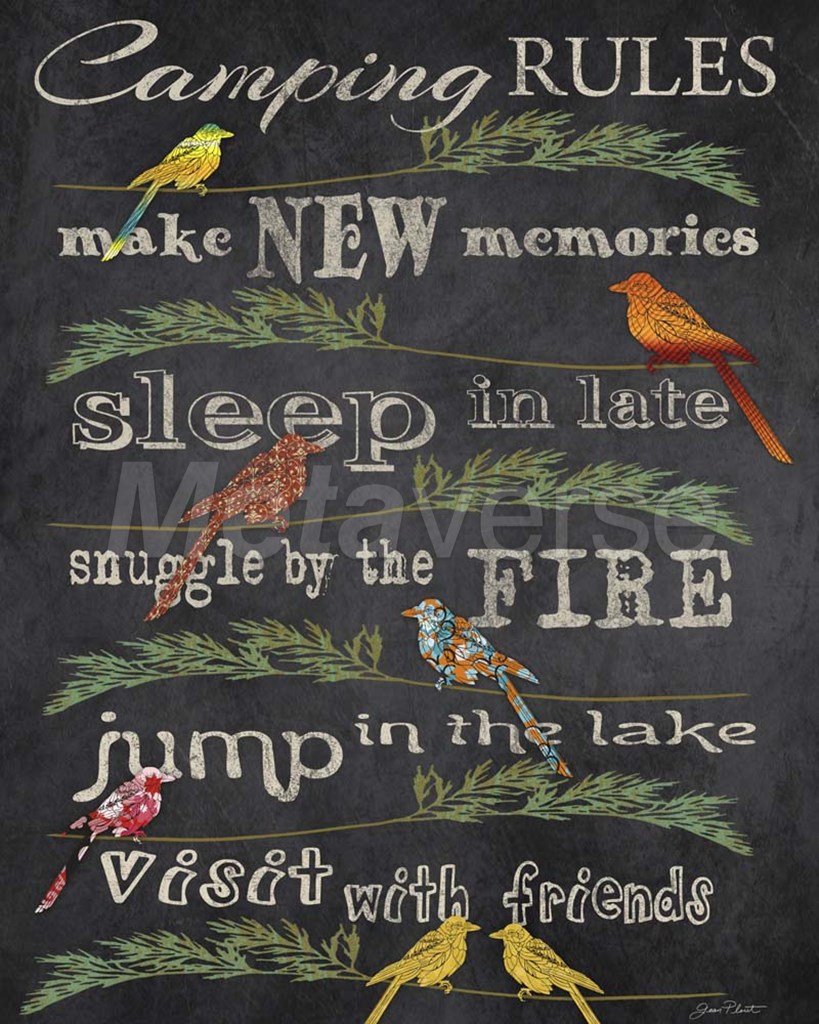 Camping RULES
make NEW memories
sleep in late
Metaverse
snuggle by the FIRE
jump in the lake
visit with friends
Jean Plout